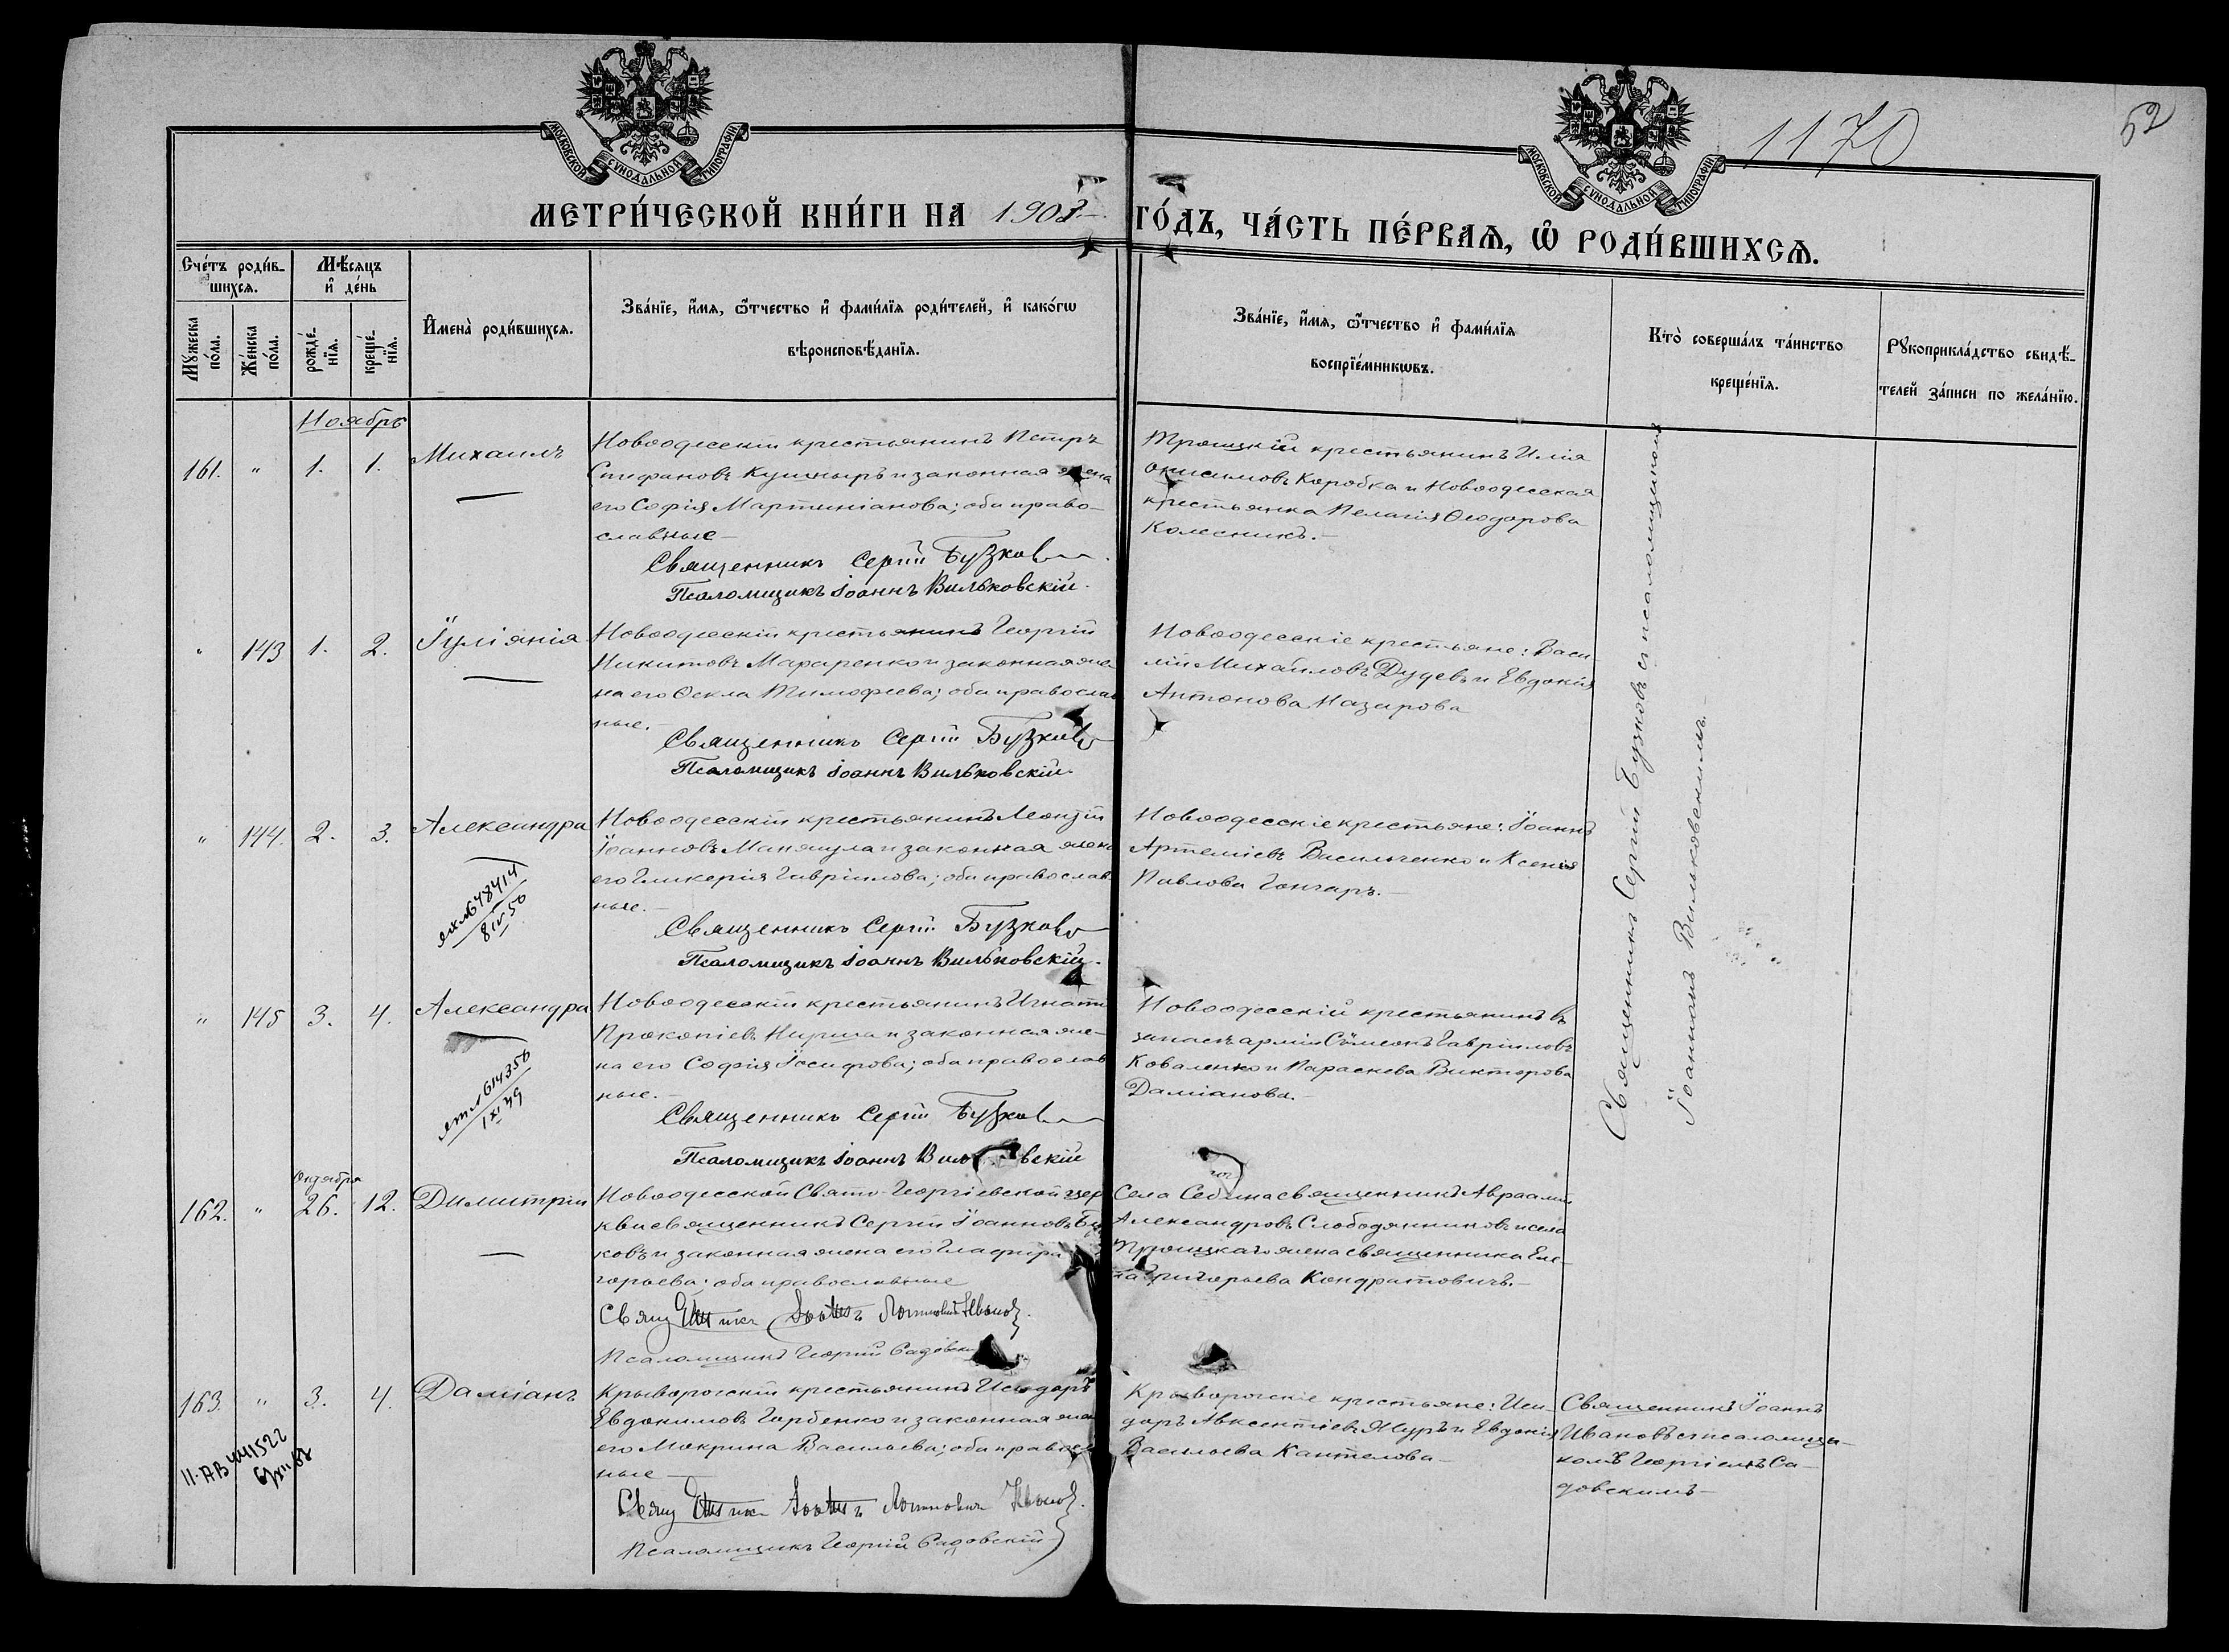 МОСКОВСКОЙ СѴНОДАЛЬНОЙ ТИПОГРАФІИ
МОСКОВСКОЙ СѴНОДАЛЬНОЙ ТИПОГРАФІИ
1170
52
МЕТРИ́ЧЕСКОЙ КНИ́ГИ НА 1908
ГО́ДЪ, ЧА́СТЬ ПЕ́РВАѦ, Ѡ҆ РОДИ́ВШИХСѦ.
Сче́тъ роди́в-
шихсѧ.
Мѣ́сѧцъ
и҆ де́нь
Мꙋ́жеска
по́ла.
Же́нска
по́ла.
рожде́-
нїѧ.
креще́-
нїѧ.
И҆мена̀ роди́вшихсѧ.
Зва́нїе, и҆́мѧ, ѻ҆́тчество и҆ фами́лїѧ роди́телей, и҆ како́гѡ
вѣроисповѣ́данїѧ.
Зва́нїе, и҆́мѧ, ѻ҆́тчество и҆ фами́лїѧ
воспрїе́мникѡвъ.
Кто̀ соверша́лъ та́инство
креще́нїѧ.
Рꙋкоприкла́дство свидѣ́-
телей за́писи по жела́нїю.
Ноябрь
161. " 1. 1. Михаилъ
Новоодесскій крестьянинъ Петръ
Стефановъ Кушныръ и законная жена
его Софія Мартиніанова; оба право-
славные
Священникъ Сергій Бузковъ
Псаломщикъ Іоаннъ Вильковскій.
Троицкій крестьянинъ Илія
Онисимовъ Коробка и Новоодесская
крестьянка Пелагія Ѳеодорова
Колесникъ.
" 143 1. 2. Іуліанія
Новоодесскій крестьянинъ Георгій
Никитовъ Макаренко и законная же-
на его Ѳекла Тимофеева; оба православ
ные.
Священникъ Сергій Бузковъ
Псаломщикъ Іоаннъ Вильковскій.
Новоодесскіе крестьяне: Васи-
лій Михайловъ Дудевъ и Евдокія
Антонова Назарова
" 144. 2. 3. Александра
648414
8 IV 50
Новоодесскій крестьянинъ Леонтій
Іоанновъ и законная жена
его Гликерія Гавріилова; оба православ
ные.
Священникъ Сергій Бузковъ
Псаломщикъ Іоаннъ Вильковскій.
Новоодесскіе крестьяне: Іоаннъ
Артеміевъ Васильченко и Ксенія
Павлова Гончаръ.
" 145 3. 4. Александра
614350
1 XI 49
Новоодесскій крестьянинъ Игнатій
Прокопіевъ и законная же-
на его Софія Іосифова; оба православ
ные.
Священникъ Сергій Бузковъ
Псаломщикъ Іоаннъ Вильковскій
Новоодесскій крестьянинъ въ
запасѣ арміи Сѵмеонъ Гавріиловъ
Коваленко и Параскева Викторова
Даміанова.
Священникъ Сергій Бузковъ съ псаломщикомъ
Іоанномъ Вильковскимъ.
Октября
162. " 26. 12. Димитрій
Новоодесской Свято-Георгіевской цер
кви священникъ Сергій Іоанновъ Буз
ковъ и законная жена его Глафира
горьева; оба православные
Священникъ Іоаннъ Ивановъ.
Псаломщикъ Георгій Садовскій
Села Себина священникъ Авраамій
Александровъ Слободянниковъ и села
Троицкаго жена священника Еле-
на Григорьева Кондратовичъ.
163. " 3. 4. Даміанъ
II-АВ 441522
Криворогскій крестьянинъ Исидоръ
Евдокимовъ Горбенко и законная жена
его Макрина Васильева; оба правосл
ные
Священникъ Іоаннъ Ивановъ.
Псаломщикъ Георгій Садовскій
Криворогскіе крестьяне: Иси-
доръ Авксентіевъ Журъ и Евдокія
Васильева Кантелова
Священникъ Іоаннъ
Ивановъ съ псаломщи-
комъ Георгіемъ Са-
довскимъ